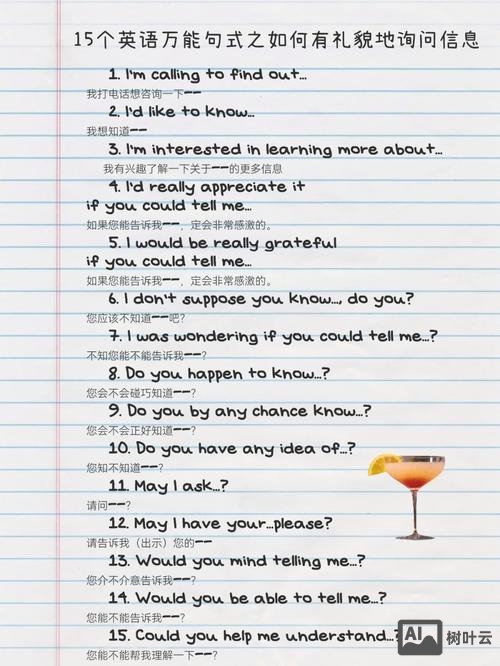 15个英语万能句式之如何有礼貌地询问信息
1. I'm calling to find out...
我打电话想咨询一下——
2. I'd like to know...
我想知道——
3. I'm interested in learning more about...
我有兴趣了解一下关于——的更多信息
4. I'd really appreciate it
if you could tell me...
如果您能告诉我——，定会非常感激的。
5. I would be really grateful
if you could tell me...
如果您能告诉我——，定会非常感激的。
6. I don't suppose you know..., do you?
您应该不知道——吧?
7. I was wondering if you could tell me...?
不知您能不能告诉我——?
8. Do you happen to know...?
您会不会碰巧知道——?
9. Do you by any chance know...?
您会不会正好知道——?
10. Do you have any idea of...?
您知不知道——?
11. May I ask...?
请问——?
12. May I have your...please?
请告诉我（出示）您的——
13. Would you mind telling me...?
您介不介意告诉我——?
14. Would you be able to tell me...?
您能不能告诉我——?
15. Could you help me understand...?
您能不能帮我理解一下——?
AI 树叶云